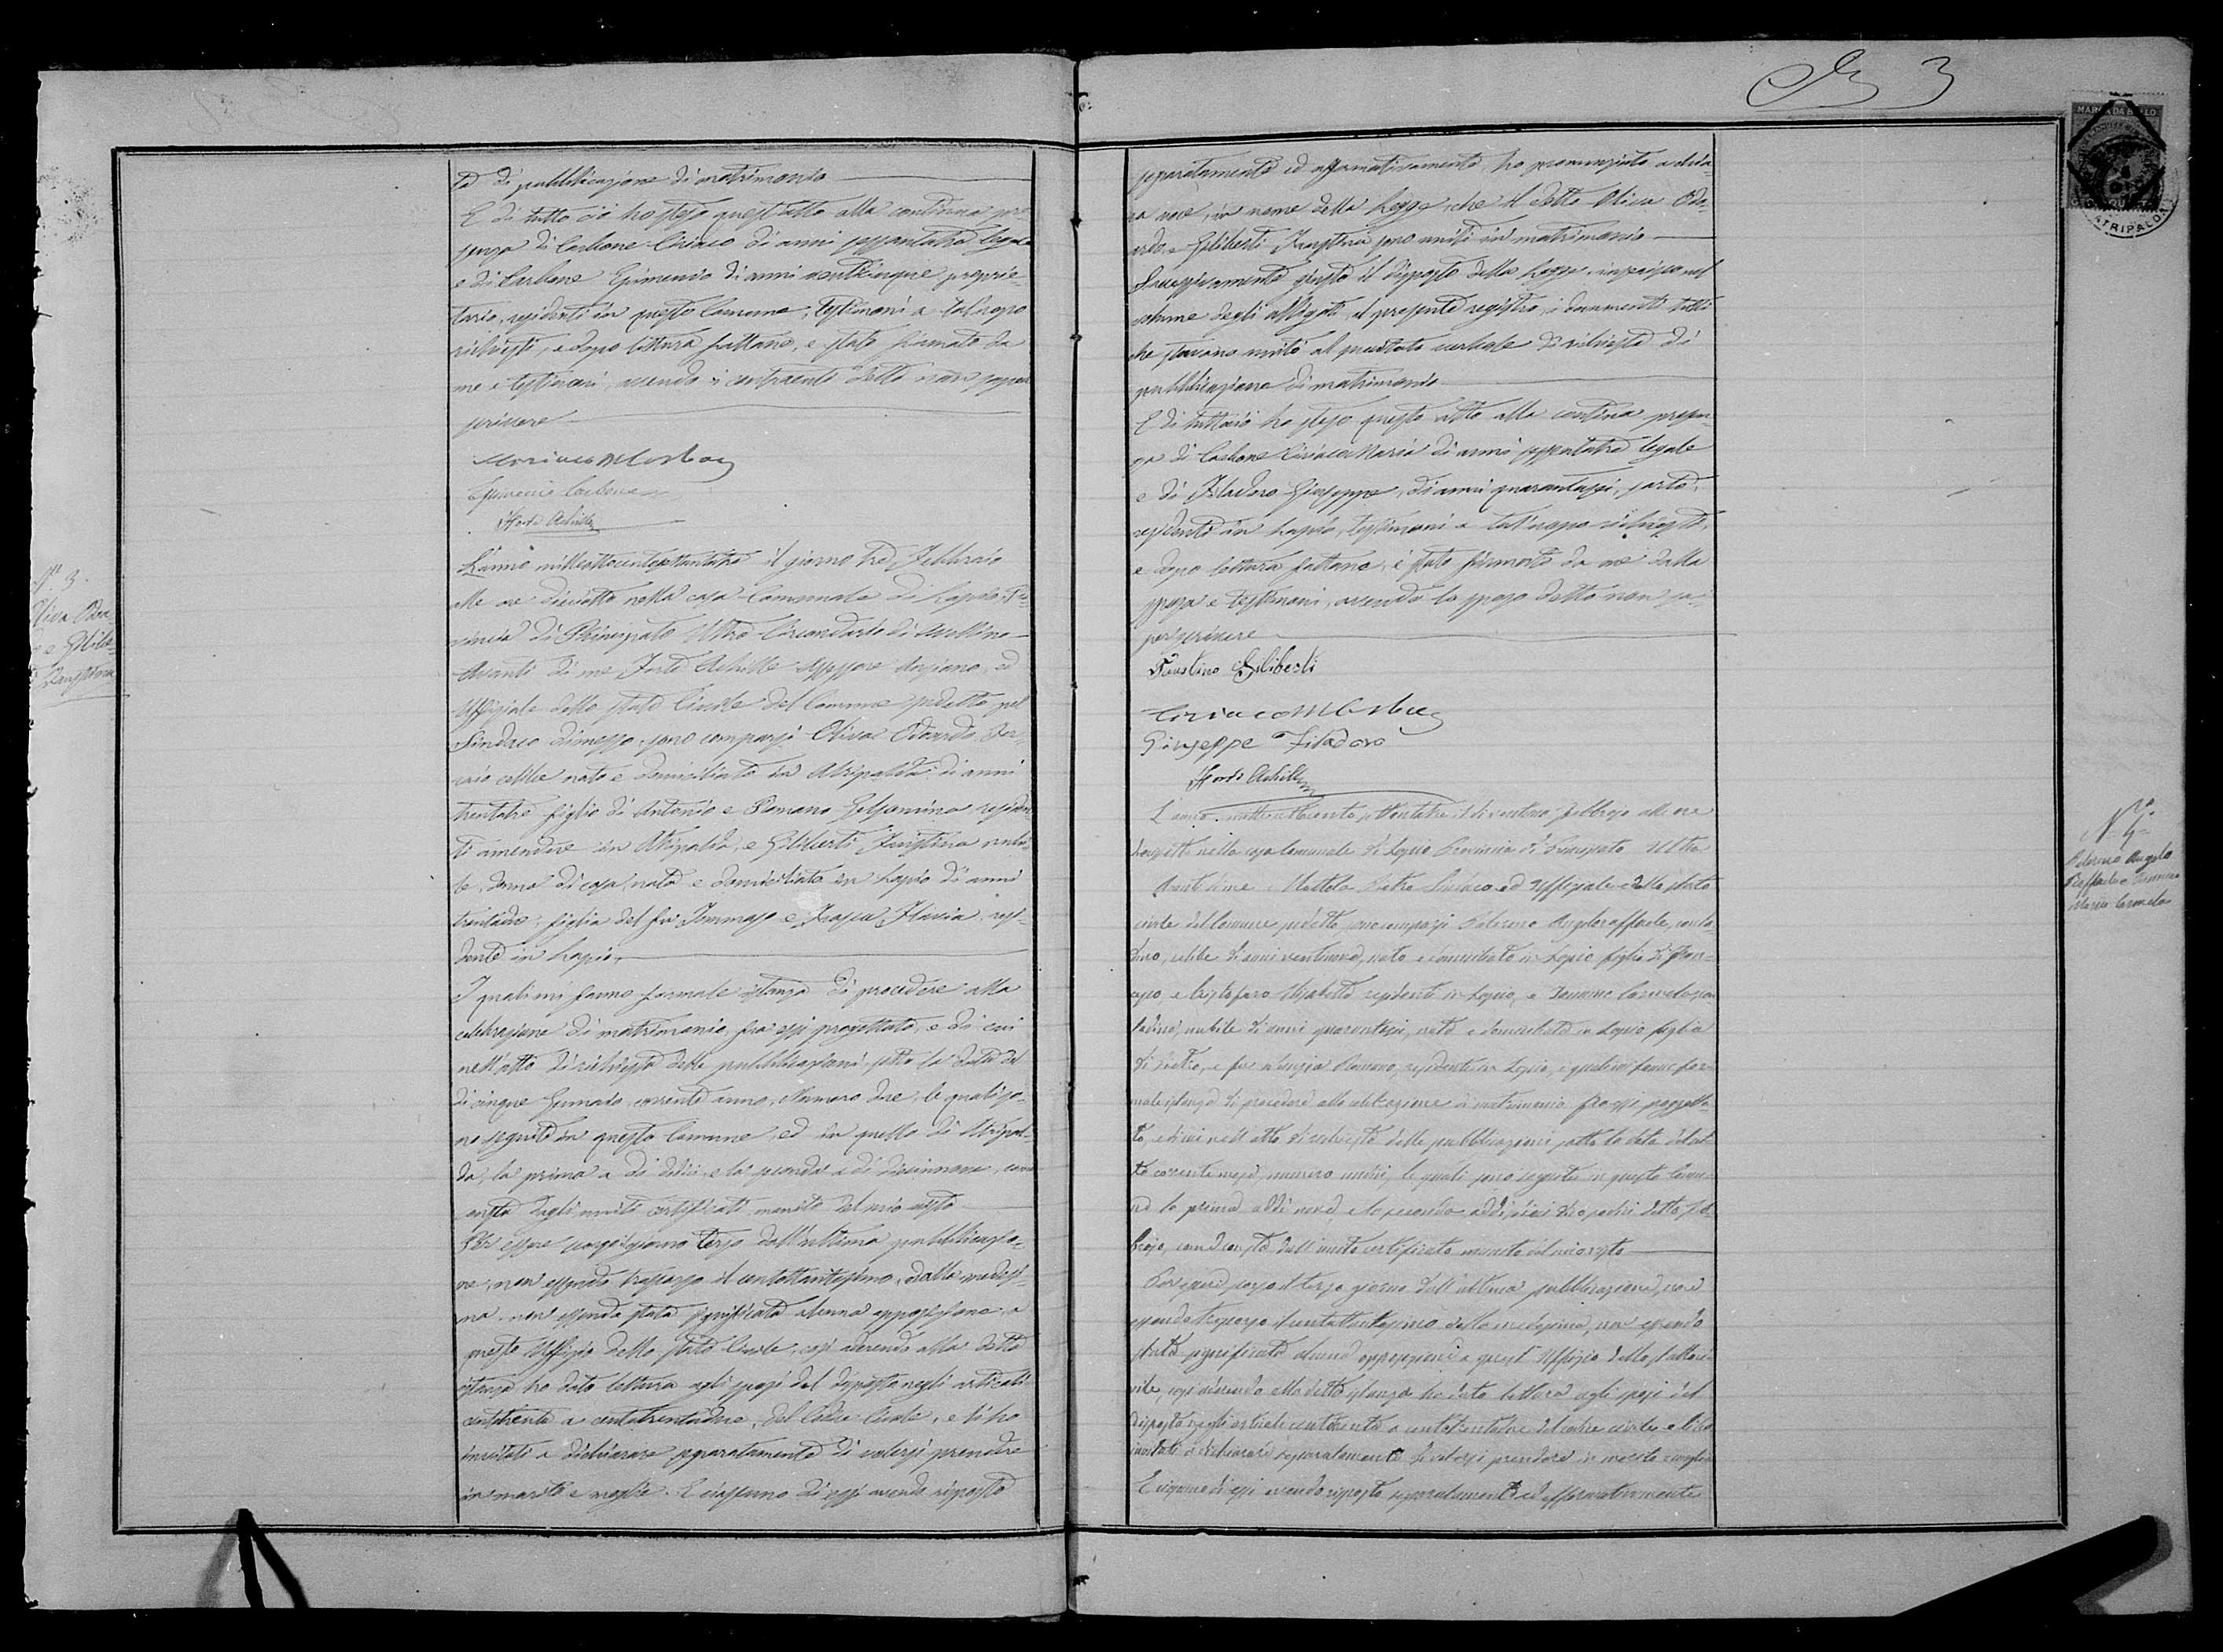 3
te di pubblicazione di matrimonio
E di tutto ciò ho steso quest'atto alla continua pre-
senza di Carbone Ciriaco di anni sessantatre legale
e di Carbone Epimenio di anni venticinque proprie-
tario, residenti in questo Comune, testimoni a tal'uopo
richiesti, e dopo lettura fattane, è stato firmato da
me e testimoni, avendo i contraenti detto non saper
scrivere
Epimenio Carbone
Forte Achille
N. 3.
Oliva Odoa
e Gilib
Faustina
L'anno milleottocentosettantatre il giorno tre Febbraio
alle ore diciotto nella casa Comunale di Lapio, Pro-
vincia di Principato Ultra Circondario di Avellino
Avanti di me Forte Achille Assessore Anziano, ed
Uffiziale dello Stato Civile del Comune sudetto pel
Sindaco dimesso, sono comparsi Oliva Odoardo
celibe nato e domiciliato in Atripalda di anni
trentatre figlio di Antonio e Romano Gelsomina residen
ti amendue in Atripalda, e Giliberti Faustina nubi-
le, donna di casa, nata e domiciliata in Lapio di anni
figlia del fu Tommaso e Flavia, resi-
dente in Lapio
I quali mi fanno formale istanza di procedere alla
celebrazione di matrimonio fra essi progettato, e di cui
nell'atto di richiesta delle pubblicazioni sotto la data del
di cinque Gennaio corrente anno, Numero due, le quali so-
no seguite in questo Comune, ed in quello di Atripal-
da, la prima a di dodici e la seconda a di diecinnove, come
costa dagli uniti certificati muniti del mio visto
Per essere scorso il giorno terzo dall'ultima pubblicazio-
ne, non essendo trascorso il centottantesimo, dalla medesi-
ma, non essendo stata significata alcuna opposizione a
questo Uffizio dello Stato Civile, così aderendo alla detta
istanza ho dato lettura agli sposi del disposto negli articoli
centotrenta a centotrentadue, del Codice Civile, e li ho
invitati a dichiarare separatamente di volersi prendere
in marito e moglie. E ciascuno di essi avendo risposto
separatamente ed affermativamente ho pronunziato a chia-
ra voce, in nome della Legge, che il detto Oliva Odo-
ardo, e Giliberti Faustina sono uniti in matrimonio
Successivamente giusto il disposto della Legge, inserisco nel
volume degli allegati, il presente registro, i documenti tutti
che stavano uniti al precitato verbale di richiesta di
pubblicazione di matrimonio
E di tutto ciò ho steso questo atto alla continua presen-
za di Carbone Ciriaco Maria di anni sessantatre legale
e di Filadoro Giuseppe, di anni quarantasei, sarto,
residenti in Lapio, testimoni a tal'uopo richiesti,
e dopo lettura fattane, è stato firmato da me dalla
sposa e testimoni, avendo lo sposo detto non sa-
per scrivere
Faustina Giliberti
Giuseppe Filadoro
Forte Achille
L'anno milleottocento settantatre, il di ventuno Febbrajo alle ore
nella casa Comunale di Lapio Provincia di Principato Ultra
Avanti di me Pietro Sindaco ed Uffiziale dello stato
civile del Comune sudetto, sono comparsi Angeloraffaele, conta-
dino, celibe di anni ventinove, nato e domiciliato in Lapio figlio di Fran-
cesco, e Cristofaro Elisabetta residenti in Lapio, e Carmela, con
tadina, nubile di anni quarantasei, nata e domiciliata in Lapio figlia
di Pietro, e fu Nunzia Romano, residente in Lapio, i quali mi fanno for-
male istanza di procedere alla celebrazione di matrimonio fra essi progetta-
to, e di cui nell'atto di richiesta delle pubblicazioni sotto la data del
corrente mese, numero undici, le quali sono seguite in questo Comu-
ne la prima addì nove, e la seconda addì sedici detto Feb-
brajo, come costa dall'unito certificato munito del mio visto
Per essere scorso il terzo giorno dall'ultima pubblicazione, non
essendo trascorso il centottantesimo dalla medesima, non essendo
stata significata alcuna opposizione a quest'Uffizio dello stato ci-
vile, così aderendo alla detta istanza ho dato lettura agli sposi del
disposto negli articoli centotrenta a centotrentadue del codice civile e li ho
invitati a dichiarare separatamente di volersi prendere in marito e moglie
E ciascuno di essi avendo risposto separatamente ed affermativamente
Angelo
Raffaele e
Maria Carmela
MARCA DA BOLLO
ATRIPALDA